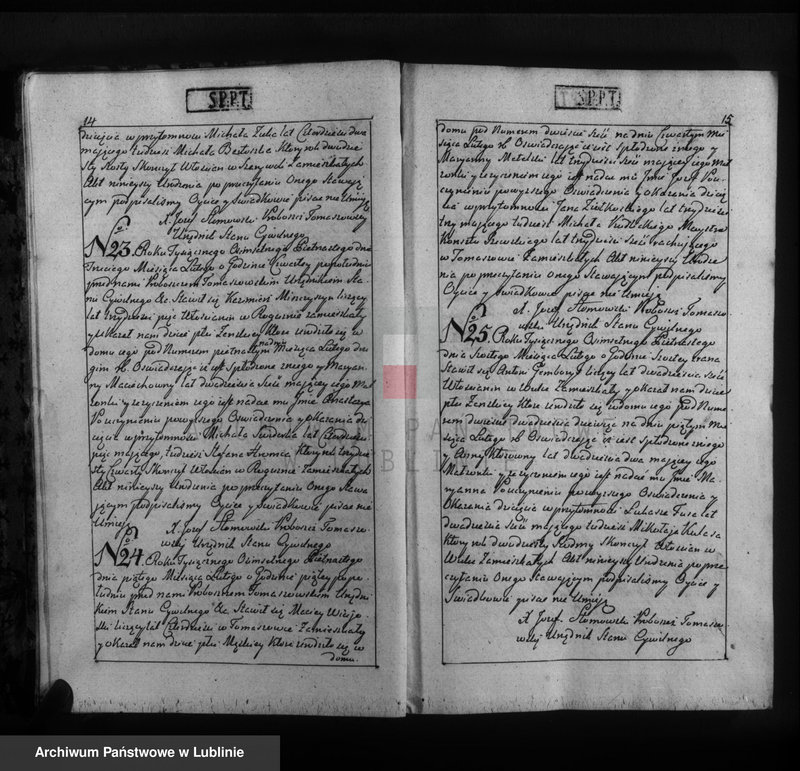 S.P.P.T.
14
dziecięcia w przytomności Michała Zuba lat Czterdzieści dwa
mającego tudzież Michała Bartoszka który rok dwudzie-
sty szosty Skończył Włościan w Zamieszkałych
Akt ninieyszy Urodzenia po przeczytaniu Onego Stawaią-
cym podpisaliśmy Oyciec y Swiadkowie pisac nie Umieią
X. Jozef Słomowski Proboszcz Tomaszowsky
Urzędnik Stanu Cywilnego
No 23. Roku Tysiącznego Osimsetnego Pietnastego dnia
Trzeciego Miesiąca Lutego o Godzinie Czwartey popołudniu
przed nami Proboszczem Tomaszowskim Urzędnikiem Sta-
nu Cywilnego &c. Stawił się Kazimierz liczący
lat trzydzieści pięć Włościanin w Rogoznie zamieszkały
y okazał nam dziecie płci Zenskiey ktore urodziło się w
domu iego pod Numerem pietnastym na dniu Miesiąca Lutego dru-
gim r.b. Oswiadczaiąc iż iest Spłodzone z niego y Maryan-
ny lat dwadzieścia Sześć maiącey iego Mał-
zonki y ze zyczeniem iego iest nadać mu Jmie Anastazya
Po uczynieniu powyzszego Oswiadczenia y okazania dzie-
cięcia w przytomności Michała lat Czterdzieści
pięć maiącego, tudzież Stefana który rok trzydzie-
sty Czwarty Skończył Włościan w Rogoznie Zamieszkałych
Akt ninieyszy Urodzenia po przeczytaniu Onego Stawa-
iącym podpisaliśmy Oyciec y Swiadkowie pisac nie
Umieią
X. Jozef Słomowski Proboszcz Tomaszo-
wsky Urzędnik Stanu Cywilnego
No 24. Roku Tysiącznego Osimsetnego Pietnastego
dnia piątego Miesiąca Lutego o Godzinie piątey popo-
łudniu przed nami Proboszczem Tomaszowskim Urzędni-
kiem Stanu Cywilnego &c. Stawił się Maciey
liczący lat Czterdzieści w Tomaszowie Zamieszkały
y okazał nam dziecie płci Męzkiey ktore urodziło się w
domu
S.P.P.T.
15
domu pod Numerem dwieście Sześć na dniu Czwartym Mie-
siąca Lutego r.b. Oswiadczaiąc iż iest Spłodzone z niego y
Maryanny lat trzydzieści Sześć maiącey iego Mał-
zonki y ze zyczeniem iego iest nadac mu Jmie Jozef Po u-
czynieniu powyzszego Oswiadczenia y okazania dziecię-
cia w przytomności Jana Ziołkoskiego lat trzydzieści
trzy maiącego tudzież Michała Maystra
Konsztu lat trzydzieści Sześć rachuiącego
w Tomaszowie Zamieszkałych Akt ninieyszy Urodze-
nia po przeczytaniu Onego Stawaiącym podpisaliśmy
Oyciec y Swiadkowie pisac nie Umieią
X. Jozef Słomowski Proboszcz Tomaszo-
wsky Urzędnik Stanu Cywilnego
No 25. Roku Tysiącznego Osimsetnego Pietnastego
dnia Szostego Miesiąca Lutego o Godzinie Szostey zrana
Stawił się Antoni liczący lat dwadzieścia Sześć
Włościanin w Zamieszkały y okazał nam dziecie
płci Zenskiey ktore urodziło się w domu iego pod Nume-
rem dwieście dwadzieścia dziewięć na dniu piątym Mie-
siąca Lutego r.b. Oswiadczaiąc iż iest Spłodzone z niego
y Anny lat dwadzieścia dwa maiącey iego
Małzonki y ze zyczeniem iego iest nadać mu Jmie Ma-
ryanna Po uczynieniu powyzszego Oswiadczenia y
Okazania dziecięcia w przytomności Łukasza lat
dwadzieścia Sześć maiącego tudzież Mikołaja Kulasa
który rok dwudziesty Siodmy Skończył Włościan w
Zamieszkałych Akt ninieyszy Urodzenia po prze-
czytaniu Onego Stawaiącym podpisaliśmy Oyciec y
Swiadkowie pisac nie Umieią
X. Jozef Słomowski Proboszcz Tomaszo-
wsky Urzędnik Stanu Cywilnego
Archiwum Państwowe w Lublinie